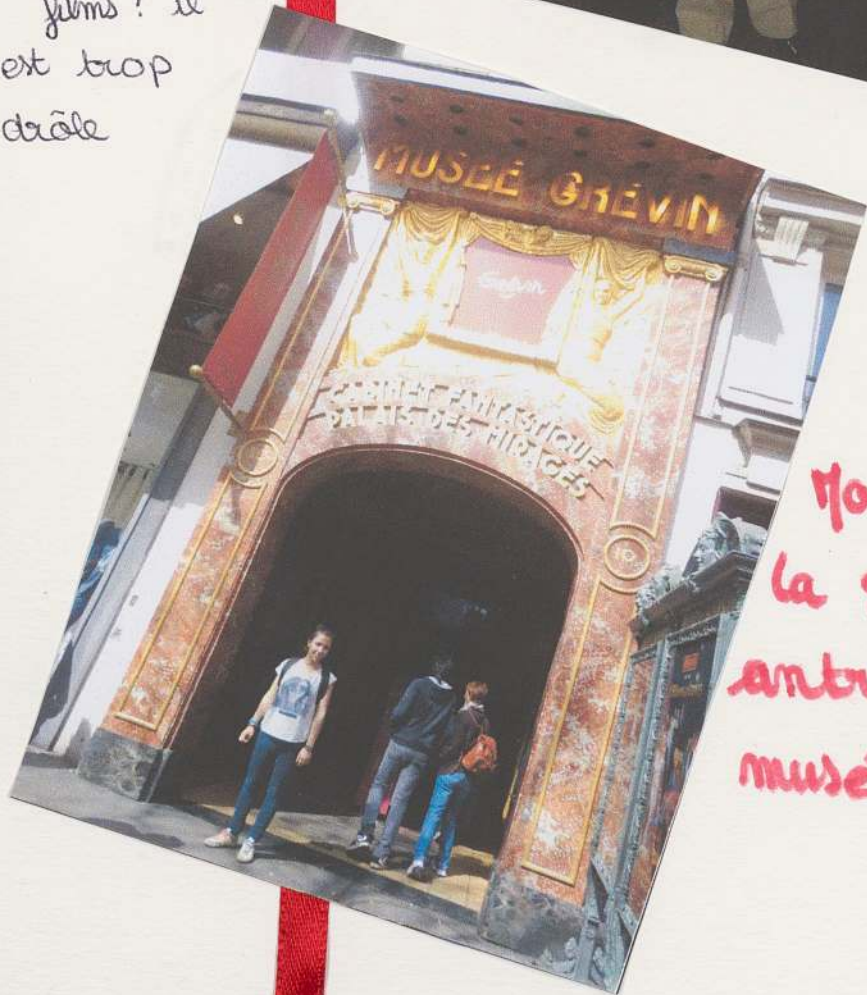 films ? il
est trop
drôle
MUSÉE GRÉVIN
Grévin
CABINET FANTASTIQUE
PALAIS DES MIRAGES
la
musé